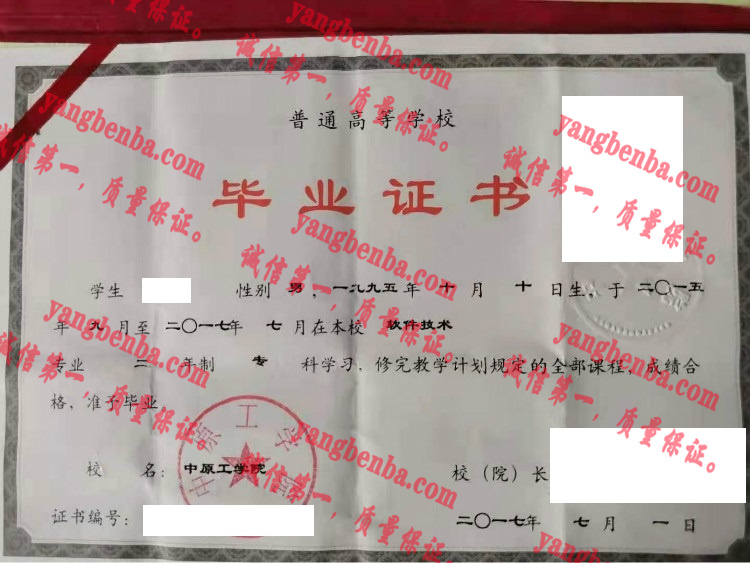 普通高等学校
毕业证书
学生 性别 男，一九九五年 十 月 十 日生，于 二〇一五
年 九 月至 二〇一七年 七 月在本校 软件技术
专业 二 年制 专 科学习，修完教学计划规定的全部课程，成绩合
格，准予毕业
校 名：中原工学院
校（院）长
证书编号：
二〇一七年 七 月 一 日
中原工学院
yangbenba.com
诚信第一，质量保证。
yangbenba.com
诚信第一，质量保证。
yangbenba.com
诚信第一，质量保证。
yangbenba.com
诚信第一，质量保证。
yangbenba.com
诚信第一，质量保证。
yangbenba.com
诚信第一，质量保证。
yangbenba.com
诚信第一，质量保证。
yangbenba.com
诚信第一，质量保证。
yangbenba.com